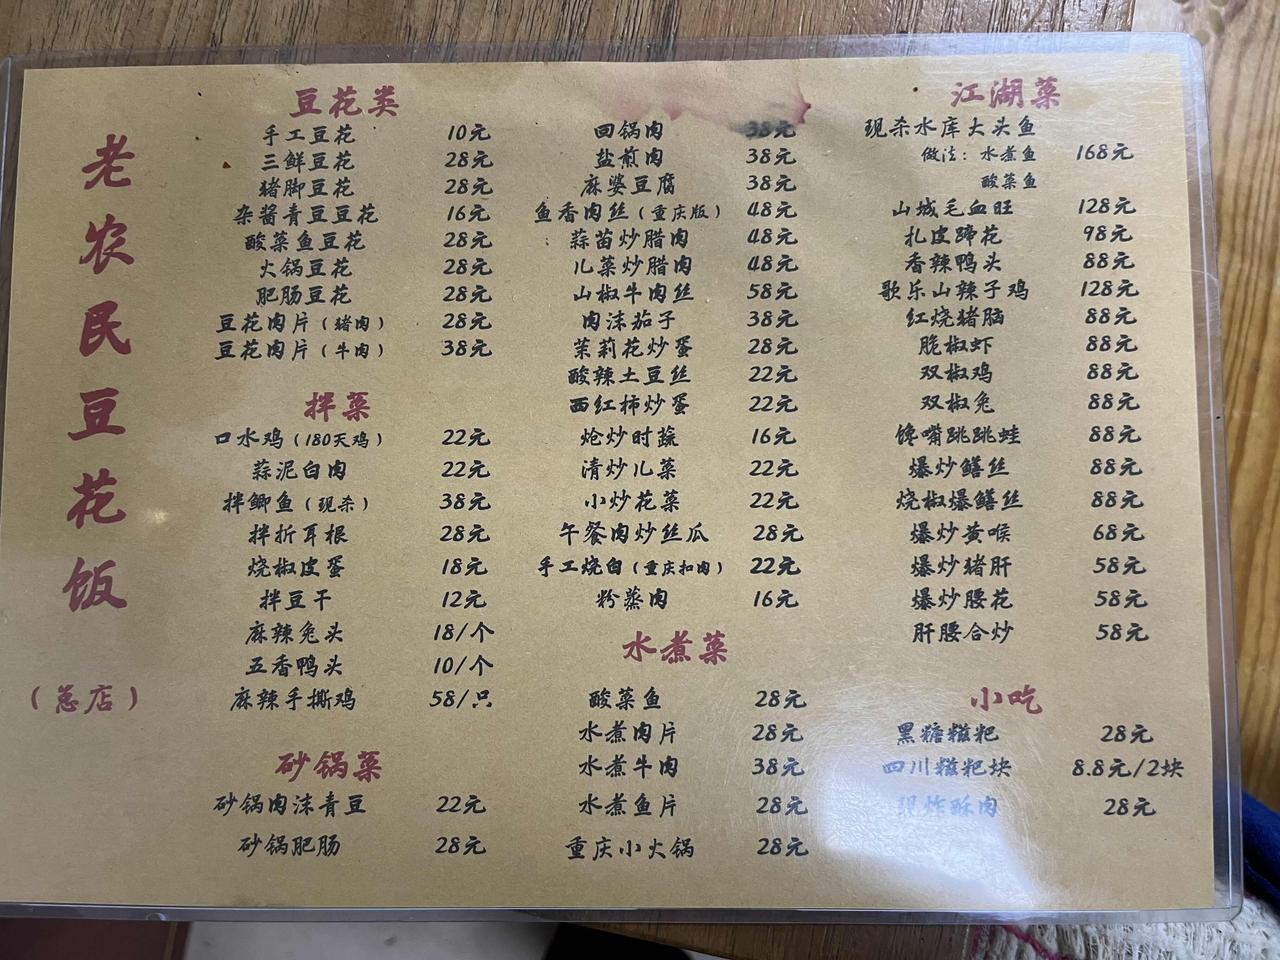 老农民豆花饭
（总店）
豆花类
手工豆花 10元
三鲜豆花 28元
猪脚豆花 28元
杂酱青豆豆花 16元
酸菜鱼豆花 28元
火锅豆花 28元
肥肠豆花 28元
豆花肉片（猪肉） 28元
豆花肉片（牛肉） 38元
拌菜
口水鸡（180天鸡） 22元
蒜泥白肉 22元
拌鲫鱼（现杀） 38元
拌折耳根 28元
烧椒皮蛋 18元
拌豆干 12元
麻辣兔头 18/个
五香鸭头 10/个
麻辣手撕鸡 58/只
砂锅菜
砂锅肉沫青豆 22元
砂锅肥肠 28元
回锅肉 38元
盐煎肉 38元
麻婆豆腐 38元
鱼香肉丝（重庆版） 48元
蒜苗炒腊肉 48元
儿菜炒腊肉 48元
山椒牛肉丝 58元
肉沫茄子 38元
茉莉花炒蛋 28元
酸辣土豆丝 22元
西红柿炒蛋 22元
炝炒时蔬 16元
清炒儿菜 22元
小炒花菜 22元
午餐肉炒丝瓜 28元
手工烧白（重庆扣肉） 22元
粉蒸肉 16元
水煮菜
酸菜鱼 28元
水煮肉片 28元
水煮牛肉 38元
水煮鱼片 28元
重庆小火锅 28元
江湖菜
现杀水库大头鱼
做法：水煮鱼 168元
酸菜鱼
山城毛血旺 128元
扎皮蹄花 98元
香辣鸭头 88元
歌乐山辣子鸡 128元
红烧猪脑 88元
脆椒虾 88元
双椒鸡 88元
双椒兔 88元
馋嘴跳跳蛙 88元
爆炒鳝丝 88元
烧椒爆鳝丝 88元
爆炒黄喉 68元
爆炒猪肝 58元
爆炒腰花 58元
肝腰合炒 58元
小吃
黑糖糍粑 28元
四川糍粑块 8.8元/2块
现炸酥肉 28元